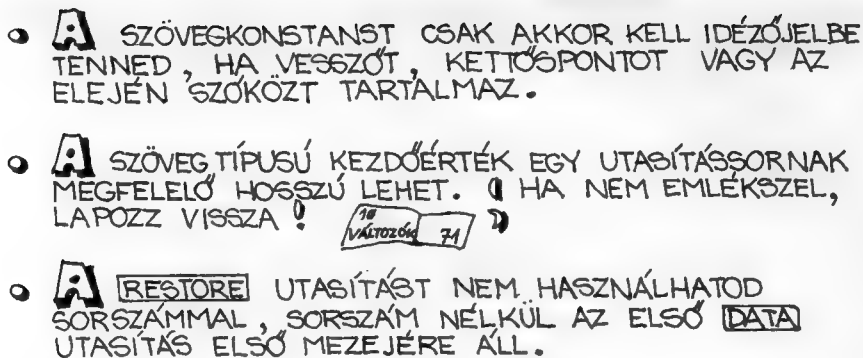 • A SZÖVEGKONSTANST CSAK AKKOR KELL IDÉZŐJELBE
TENNED, HA VESSZŐT, KETTŐSPONTOT VAGY AZ
ELEJÉN SZÓKÖZT TARTALMAZ.
• A SZÖVEG TÍPUSÚ KEZDŐÉRTÉK EGY UTASÍTÁSSORNAK
MEGFELELŐ HOSSZÚ LEHET. ( HA NEM EMLÉKSZEL,
LAPOZZ VISSZA! 10 VÁLTOZÓK 71 )
• A RESTORE UTASÍTÁST NEM HASZNÁLHATOD
SORSZÁMMAL, SORSZÁM NÉLKÜL AZ ELSŐ DATA
UTASÍTÁS ELSŐ MEZEJÉRE ÁLL.